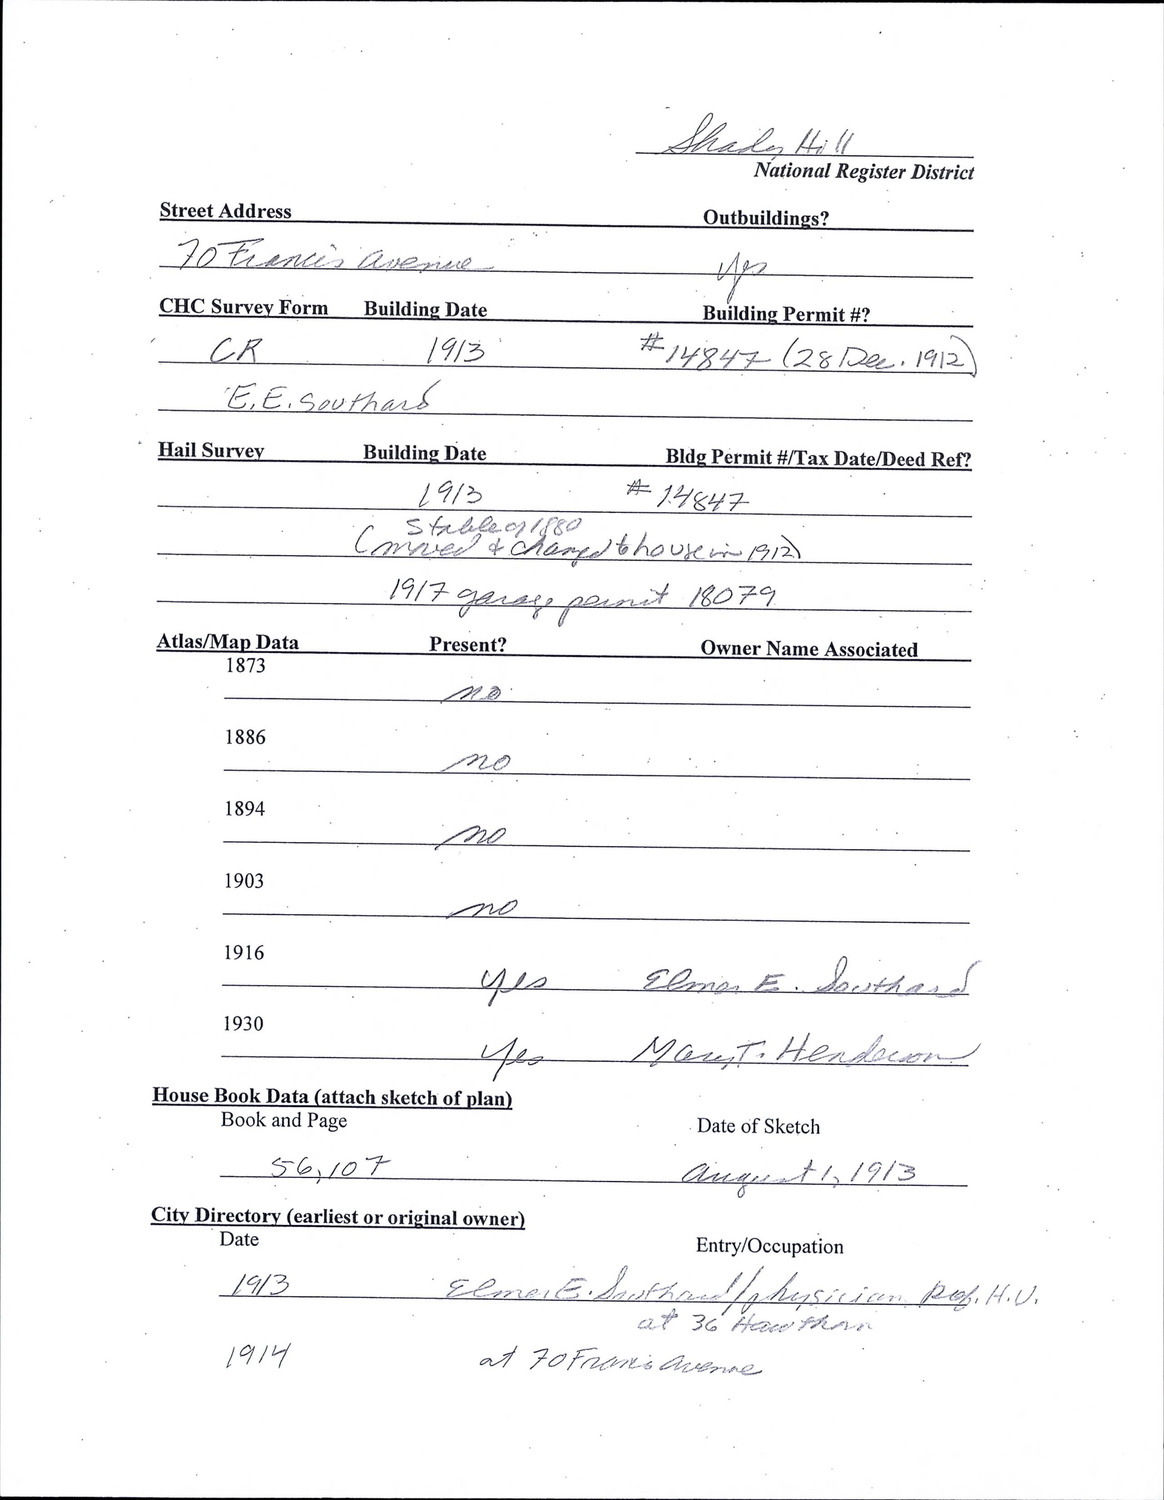 Shady Hill
National Register District
Street Address Outbuildings?
70 Francis Avenue yes
CHC Survey Form Building Date Building Permit #?
CR 1913 #14847 (28 Dec. 1912)
E.E. Southard
Hail Survey Building Date Bldg Permit #/Tax Date/Deed Ref?
1913 #14847
Stable of 1880
(moved & changed to house in 1912)
1917 garage permit 18079
Atlas/Map Data Present? Owner Name Associated
1873
no
1886
no
1894
no
1903
no
1916
yes Elmer E. Southard
1930
yes Mary T. Henderson
House Book Data (attach sketch of plan)
Book and Page Date of Sketch
56,107 August 1, 1913
City Directory (earliest or original owner)
Date Entry/Occupation
1913 Elmer E. Southard/physician Prof. H.U.
at 36 Hawthorn
1914 at 70 Francis Avenue